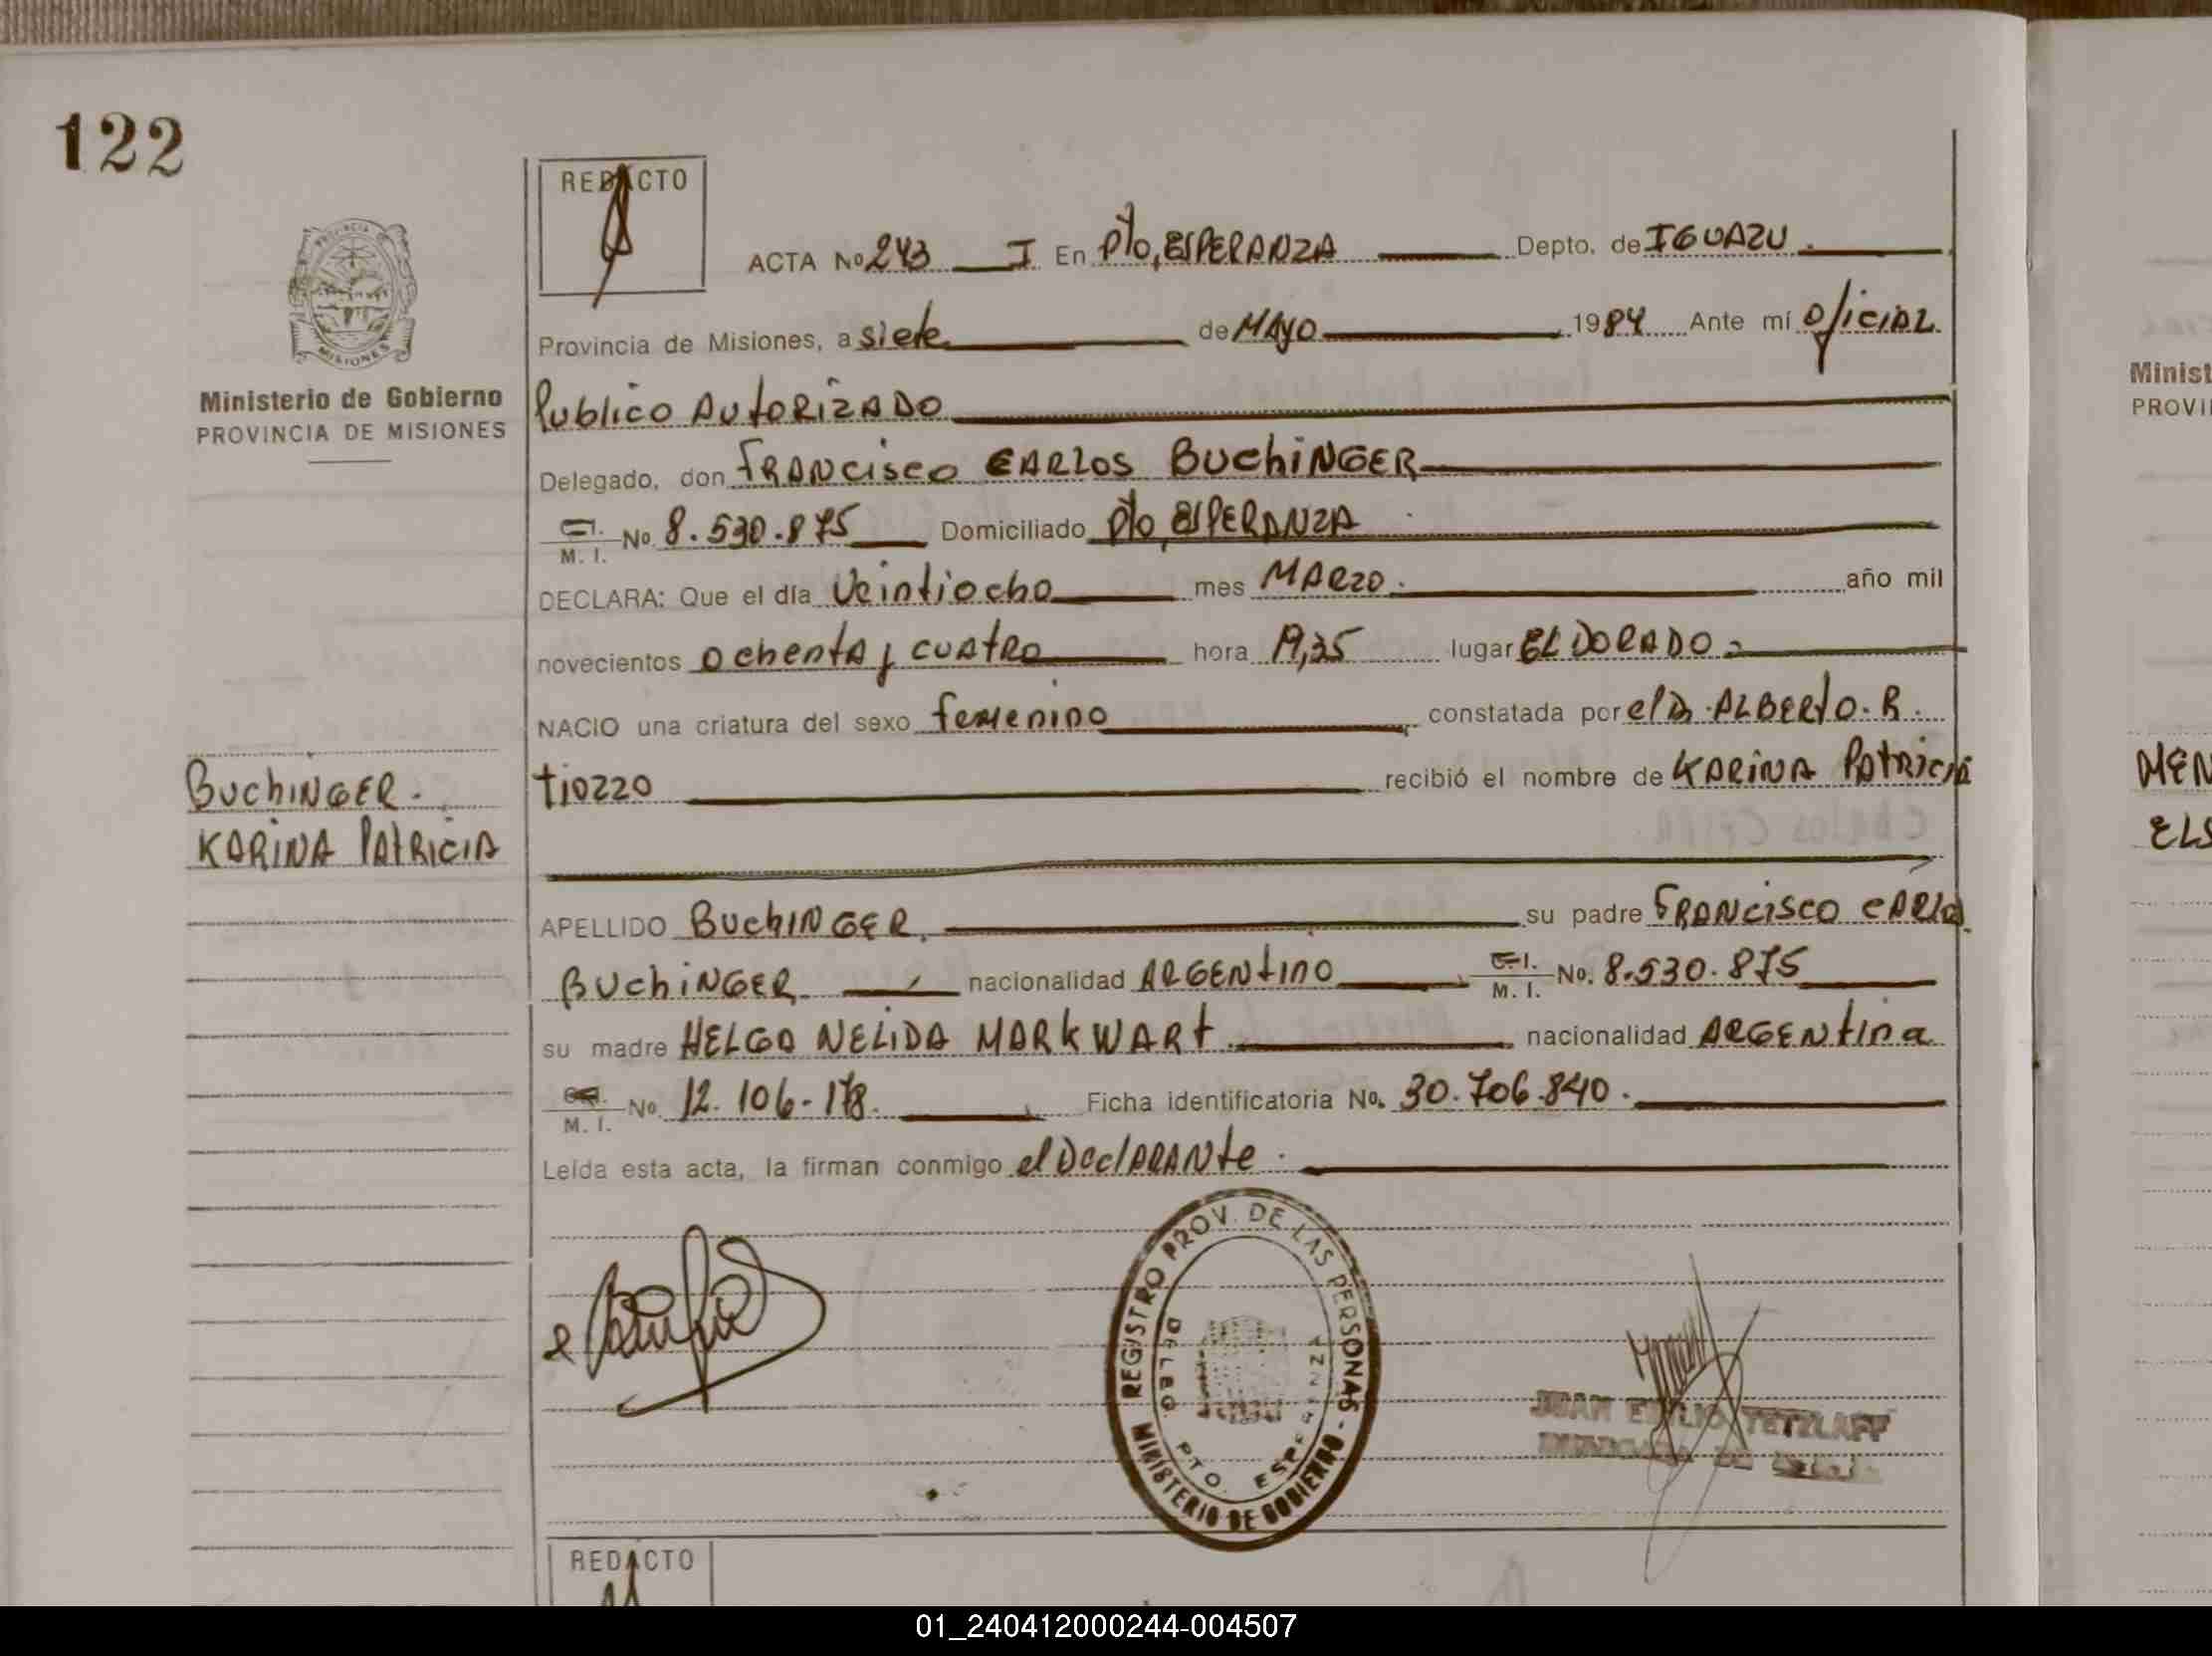 122
REDACTO
ACTA No 243 I En Pto, ESPERANZA Depto. de IGUAZU.
PROVINCIA DE
MISIONES
Provincia de Misiones, a siete de MAYO 1984 Ante mí Oficial
Ministerio de Gobierno
PROVINCIA DE MISIONES
Publico AutORIZADO
Delegado, don FRANCISCO CARLOS BUCHINGER
C.I. M. I. No. 8.530.875 Domiciliado Pto, ESPERANZA
DECLARA: Que el día Veintiocho mes MARZO. año mil
novecientos ochenta y cuatro hora 19,35 lugar ELDORADO
NACIO una criatura del sexo femenino constatada por el Dr. ALBERTO. R.
BUCHINGER.
KARINA PATRICIA
tiozzo recibió el nombre de KARINA PATRICIA
APELLIDO BUCHINGER. su padre FRANCISCO CARLOS
BUCHINGER nacionalidad ARGENTINO C.I. M. I. No. 8.530.875
su madre HELGA NELIDA MARKWART. nacionalidad ARGENTINA
M. I. No 12.106.178. Ficha identificatoria No. 30.706.840.
Leída esta acta, la firman conmigo el DeclARANte.
REGISTRO PROV. DE LAS PERSONAS - MINISTERIO DE GOBIERNO -
DELEG. PTO. ESPERANZA
JUAN EMILIO TETZLAFF
REDACTO
Minist
PROVI
MEN
ELS
01_240412000244-004507